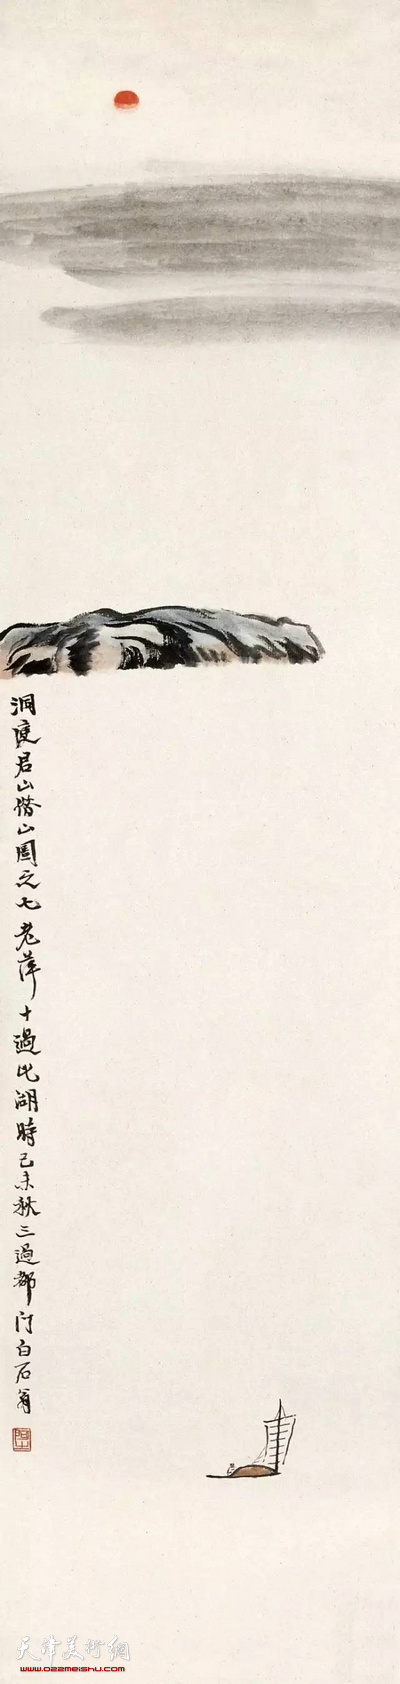 洞庭君山借山圖之七老萍十過此湖時己未秋三過都门白石翁
天津美術網
www.022meishu.com